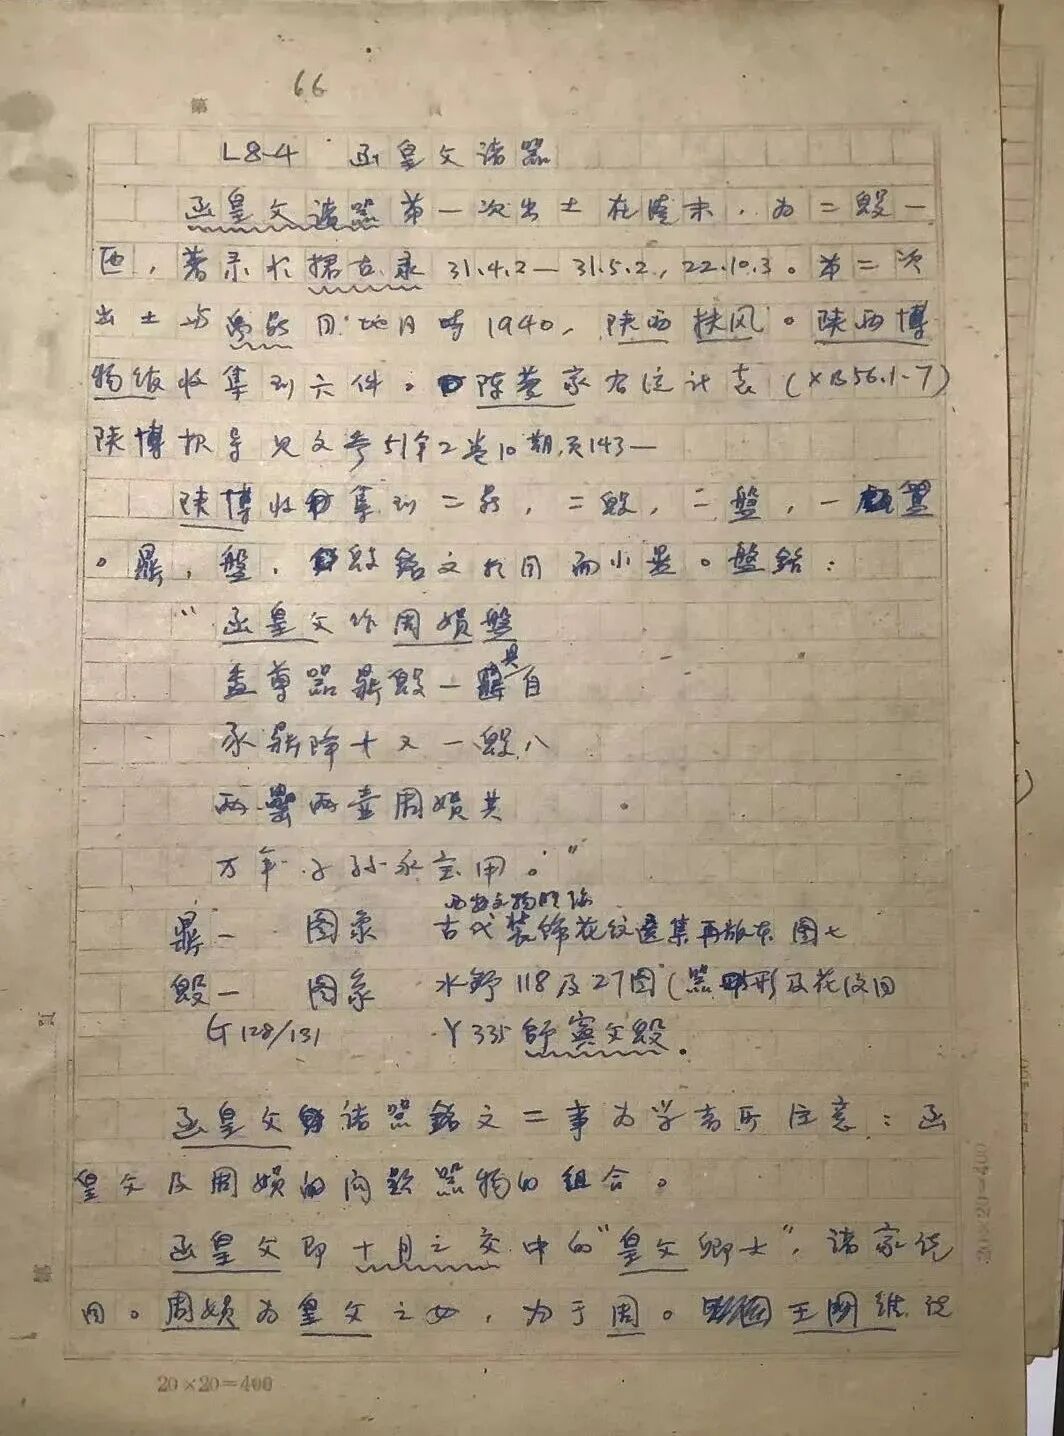 第 66 頁
L8-4 函皇父诸器
函皇父诸器第一次出土在清末,为二毁一
匜,著录于攈古录 31.4.2—31.5.2,22.10.3。第二次
出土与 同地 时1940,陕西扶风。陕西博
物馆收集到六件。陈梦家有统计表(XB56.1-7)
陕博报导见文参51年2卷10期,页143—
陕博收集到二鼎,二毁,二盤,一
。鼎,盤,毁銘文于同而小异。盤銘:
“函皇父作周娟盤
盉尊器鼎毁一具自
豕鼎降十又一毁八
两罍两壶周娟其
万年子孙永宝用。”
西安文物
鼎一 图象 古代装饰花纹選集再版本 图七
毁一 图象 水野118及27图(器形及花纹同
G128/131 Y335 父毁。
函皇父诸器銘文二事为学者所注意:函
皇父及周娟的问题器物的组合。
函皇父即十月之交中的“皇父卿士”,诸家说
同。周娟为皇父之女,为于周。王国维说
20×20=400
20×20=400